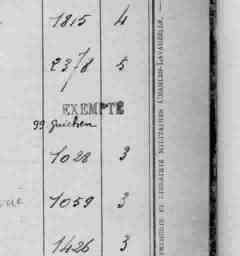 1815 4
2378 5
EXEMPTÉ
99 Guichen
1028 3
1059 3
1426 3
IMPRIMERIE ET LIBRAIRIE MILITAIRES CHARLES-LAVAUZELLE. —